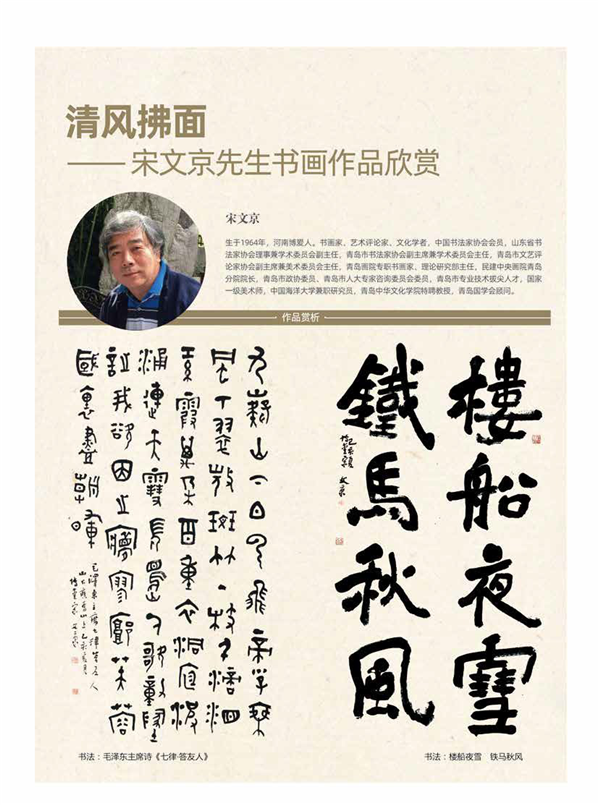 清风拂面
—— 宋文京先生书画作品欣赏
宋文京
生于1964年，河南博爱人。书画家、艺术评论家、文化学者，中国书法家协会会员，山东省书
法家协会理事兼学术委员会副主任，青岛市书法家协会副主席兼学术委员会主任，青岛市文艺评
论家协会副主席兼美术委员会主任，青岛画院专职书画家、理论研究部主任，民建中央画院青岛
分院院长，青岛市政协委员、青岛市人大专家咨询委员会委员，青岛市专业技术拔尖人才，国家
一级美术师，中国海洋大学兼职研究员，青岛中华文化学院特聘教授，青岛国学会顾问。
作品赏析
樓船夜雪
鐵馬秋風
文京
九嶷山上白雲飛帝子乘
風下翠微斑竹一枝千滴淚
紅霞萬朵百重衣洞庭波
涌連天雪長島人歌動地
詩我欲因之夢寥廓芙蓉
國裏盡朝暉
书法：毛泽东主席诗《七律·答友人》
书法：楼船夜雪 铁马秋风